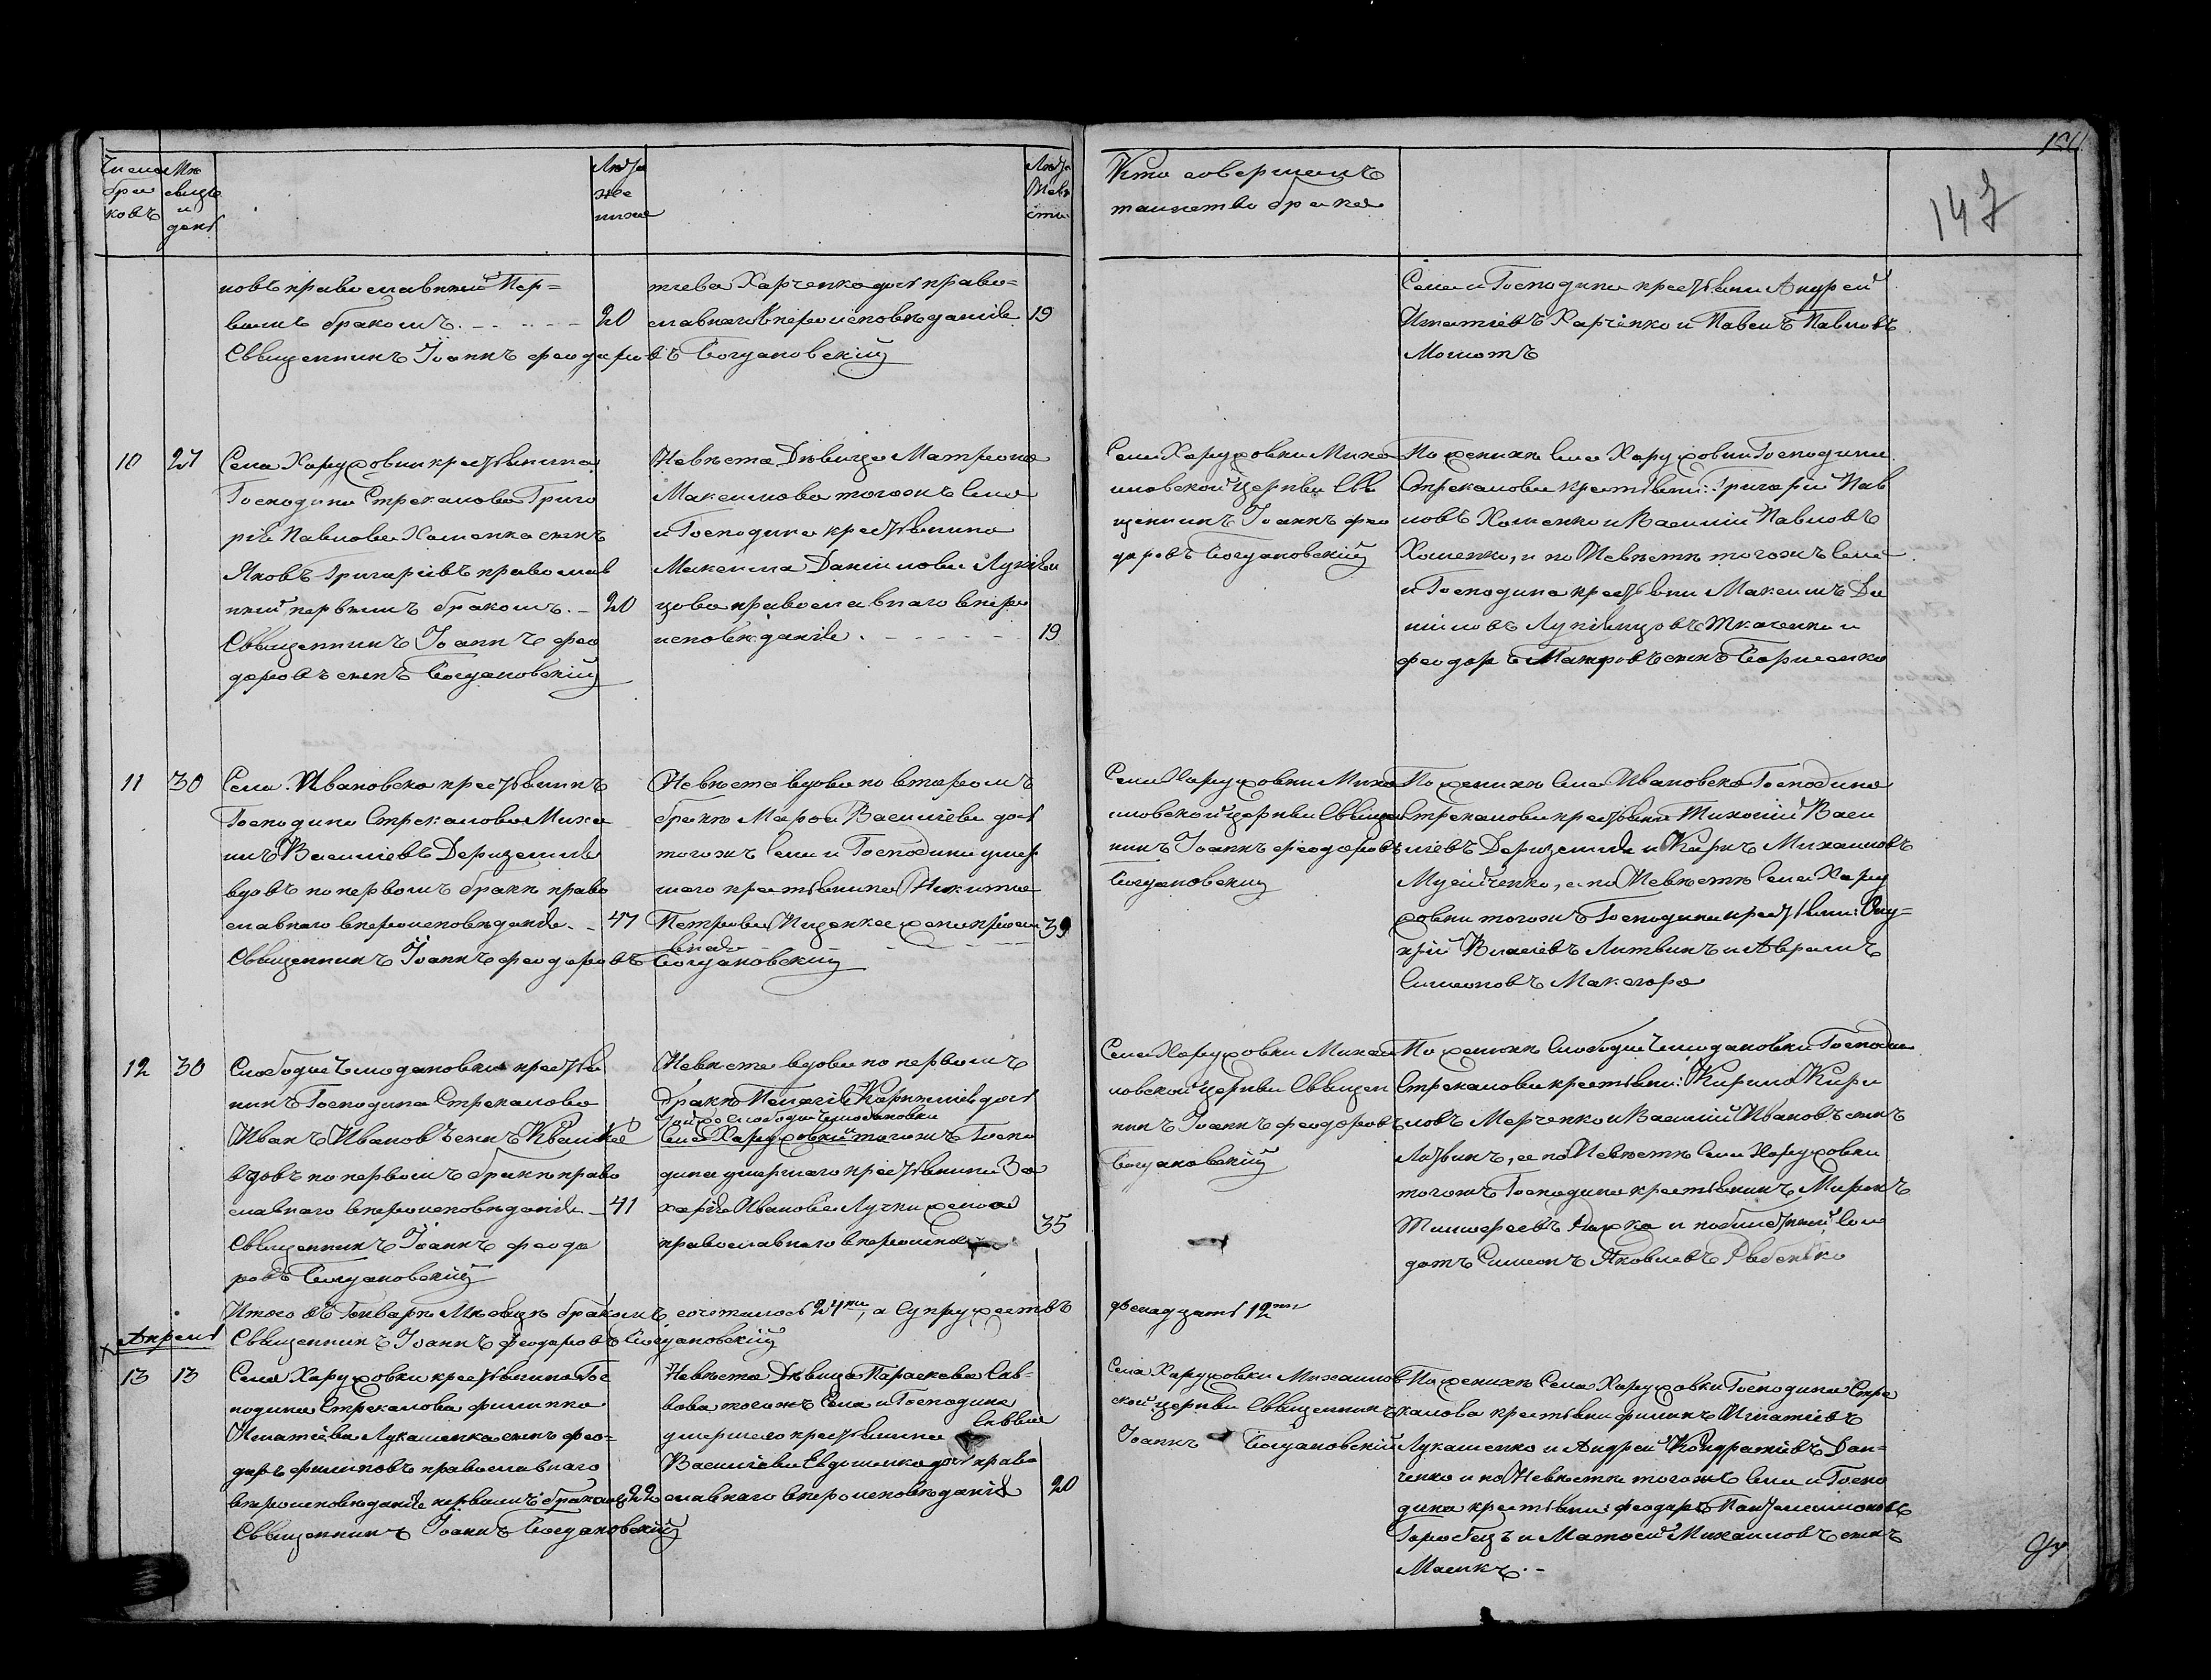 Число браковъ
Мѣсяцъ и день
Лѣта жениха
Лѣта Невѣсты
Кто совершалъ
таинство брака
147
новъ православный Пер=
вымъ бракомъ. 20
Священникъ Іоаннъ Феодоровъ Богдановскій
тіева Харченка дочь право=
славнаго вѣроисповѣданія 19
Села и Господина крестьяни Андрей
Игнатіевъ Харченко и Павелъ Павловъ
10 27
Села Харуховки крестьянина
Господина Стрекалова Григо
рія Павлова Хоменка сынъ
Яковъ Григоріевъ православ
ный первымъ бракомъ. 20
Священникъ Іоаннъ Фео
доровъ сынъ Богдановскій
Невѣста Дѣвица Матрона
Максимова тогожъ Села
и Господина крестьянина
Максима Даніилова
православнаго вѣро
исповѣданія. 19
Села Харуховки Миха
иловской Церкви Свя
щенникъ Іоаннъ Фео
доровъ Богдановскій
По женихѣ Села Харуховки Господина
Стрекалова крестьяни: Григорій Пав
ловъ Хоменко и Василій Павловъ
Хоменко, и по Невѣстѣ тогожъ Села
и Господина крестьяни Максимъ Да
ніиловъ Ткаченко и
Феодоръ сынъ Борисенко
11 30
Села Ивановска крестьянинъ
Господина Стрекалова Миха
илъ Василіевъ Дериземля
вдовъ по первомъ бракѣ право
славнаго вѣроисповѣданія. 47
Священникъ Іоаннъ Феодоровъ Богдановскій
Невѣста вдова по второмъ
бракѣ Марфа Василіева дочь
тогожъ Села и Господина умер
шаго крестьянина Никиты
Петрова Ищенка жена 39
Села Харуховки Миха
иловской Церкви Священ
никъ Іоаннъ Феодоровъ
Богдановскій
По женихѣ Села Ивановска Господина
Стрекалова крестьяни Тихоній Васи
ліевъ Дериземля и Карпъ Михаиловъ
Мусійченко, а по Невѣстѣ Села Хару
ховки тогожъ Господина крестьяни: Ону=
фрій Власіевъ Литвинъ и Аврамъ
Симеоновъ Макогора
12 30
Слободы Чемодановки крестья
нинъ Господина Стрекалова
Иванъ Ивановъ сынъ
вдовъ по первомъ бракѣ право
славнаго вѣроисповѣданія. 41
Священникъ Іоаннъ Феодо
ровъ Богдановскій
Невѣста вдова по первомъ
бракѣ Пелагія Корниліева дочь
Слободы Чемодановки
Села Харуховки тогожъ Госпо
дина умершаго крестьянина За
харія Иванова Лучки жена
православнаго вѣроиспов 35
Села Харуховки Михаи
ловской Церкви Священ
никъ Іоаннъ Феодоровъ
Богдановскій
По женихѣ Слободы Чемодановки Господина
Стрекалова крестьяни: Кирило Кири
ловъ Марченко и Василій Ивановъ сынъ
Литвинъ, а по Невѣстѣ Села Харуховки
тогожъ Господина крестьянинъ Миронъ
Тимофеевъ и Сол
датъ Симеонъ Яковлевъ Рябенько
Итого въ Генварѣ Мѣсяцѣ бракомъ сочеталось 24ри, а Супружествъ
двенадцать 12ть
Священникъ Іоаннъ Феодоровъ Богдановскій
Апрель
13 13
Села Харуховки крестьянина Гос
подина Стрекалова Филиппа
Игнатіева Лукашенка сынъ Фео=
доръ Филиповъ православнаго
вѣроисповѣданія первымъ бракомъ 22
Священникъ Іоаннъ Богдановскій
Невѣста Дѣвица Параскева Сав=
вова тогожъ Села и Господина
умершаго крестьянина Саввы
Василіева Евдошенко дочь право
славнаго вѣроисповѣданія 20
Села Харуховки Михаилов
ской Церкви Священникъ
Іоаннъ Богдановскій
По женихѣ Села Харуховки Господина Стре
калова крестьяни Филипъ Игнатіевъ
Лукашенко и Андрей Кондратіевъ Дан=
ченко и по Невѣстѣ тогожъ Села и Госпо
дина крестьяни: Феодоръ Пантелеимоновъ
Горобецъ и Матфей Михаиловъ сынъ